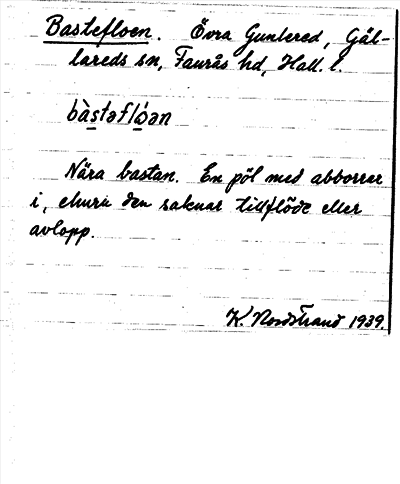 Bastefloen. Övra Gunnered, Gäl-
lareds sn, Faurås hd, Hall. l.
bàstəflóən
Nära bastan. En pöl med abborrar
i, ehuru den saknar tillflöde eller
avlopp.
K. Nordstrand 1939.